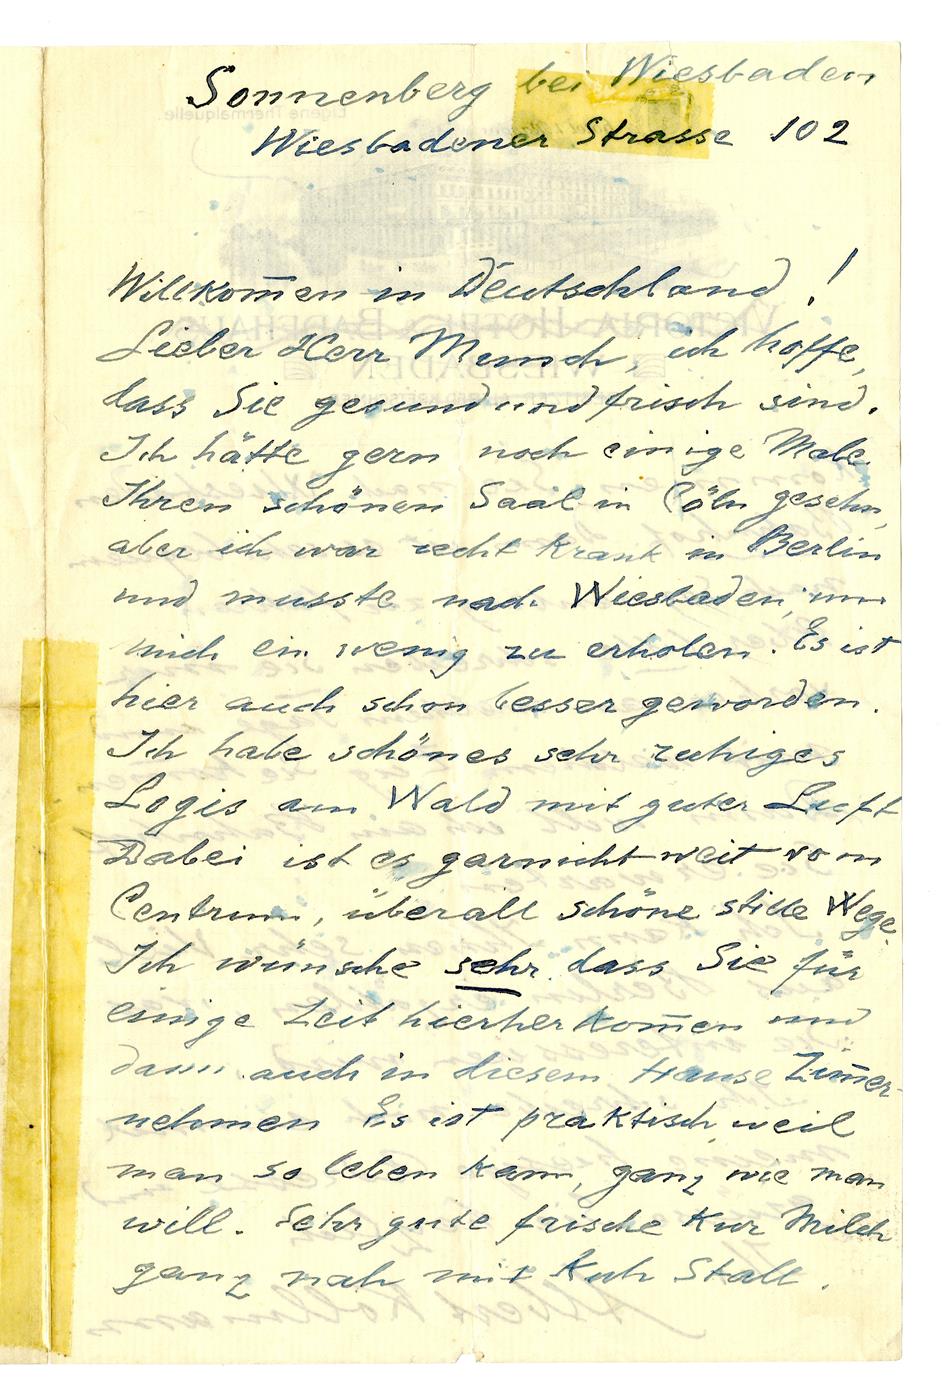 Sonnenberg bei Wiesbaden
Wiesbadener Strasse 102
Eigene Thermalquelle.
VICTORIA-HOTEL & BADEHAUS
WIESBADEN
Willkom̅en in Deutschland!
Lieber Herr Munch, ich hoffe,
dass Sie gesund und frisch sind.
Ich hätte gern noch einige Male
Ihren schönen Saal in Cöln gesehn,
aber ich war recht krank in Berlin
und musste nach Wiesbaden, um
mich ein wenig zu erholen. Es ist
hier auch schon besser geworden.
Ich habe schönes sehr ruhiges
Logis am Wald mit guter Luft
Dabei ist es garnicht weit vom
Centrum, überall schöne stille Wege.
Ich wünsche sehr, dass Sie für
einige Zeit hierher kom̅en und
dann auch in diesem Hause Zim̅er
nehmen Es ist praktisch, weil
man so leben kann, ganz wie man
will. Sehr gute frische Kur Milch
ganz nah mit Kuh Stall.
Albert Kollmann